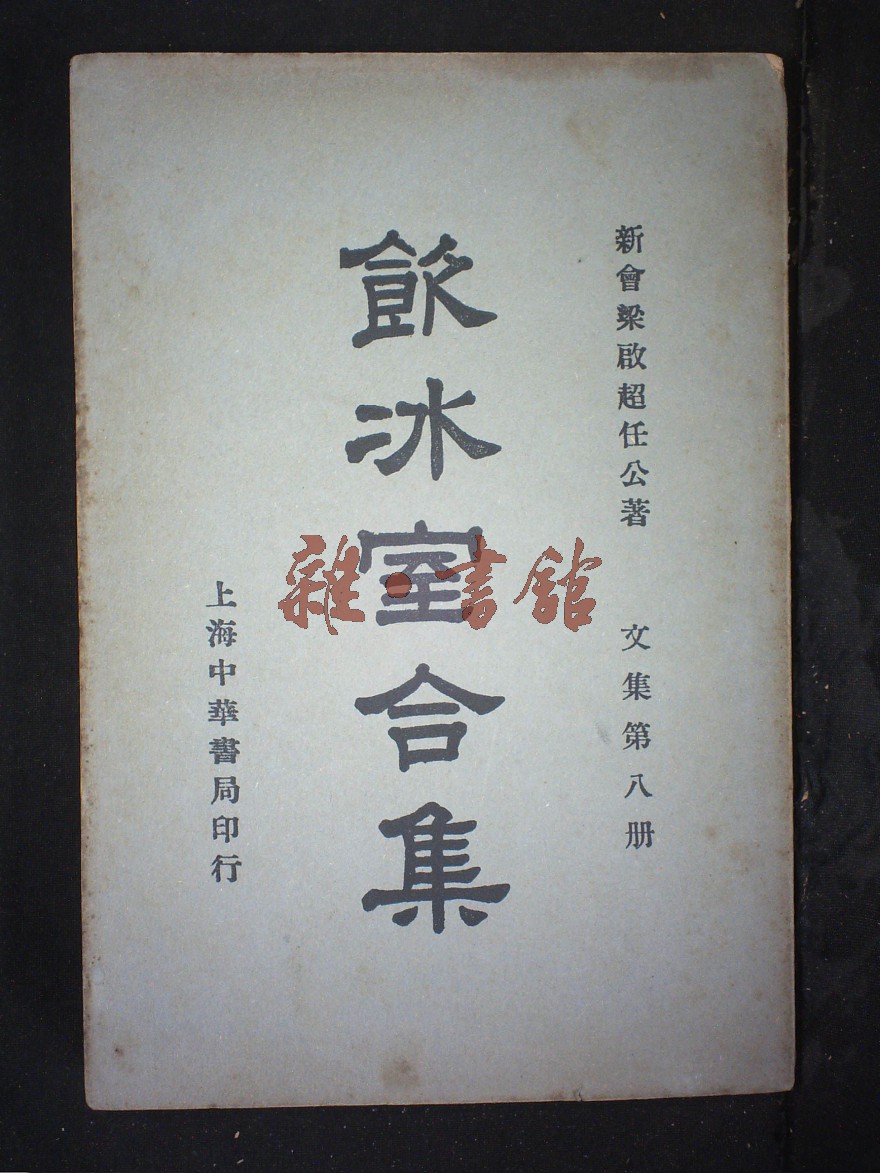 新會梁啟超任公著
文集第八册
飲冰室合集
上海中華書局印行
雜·書館